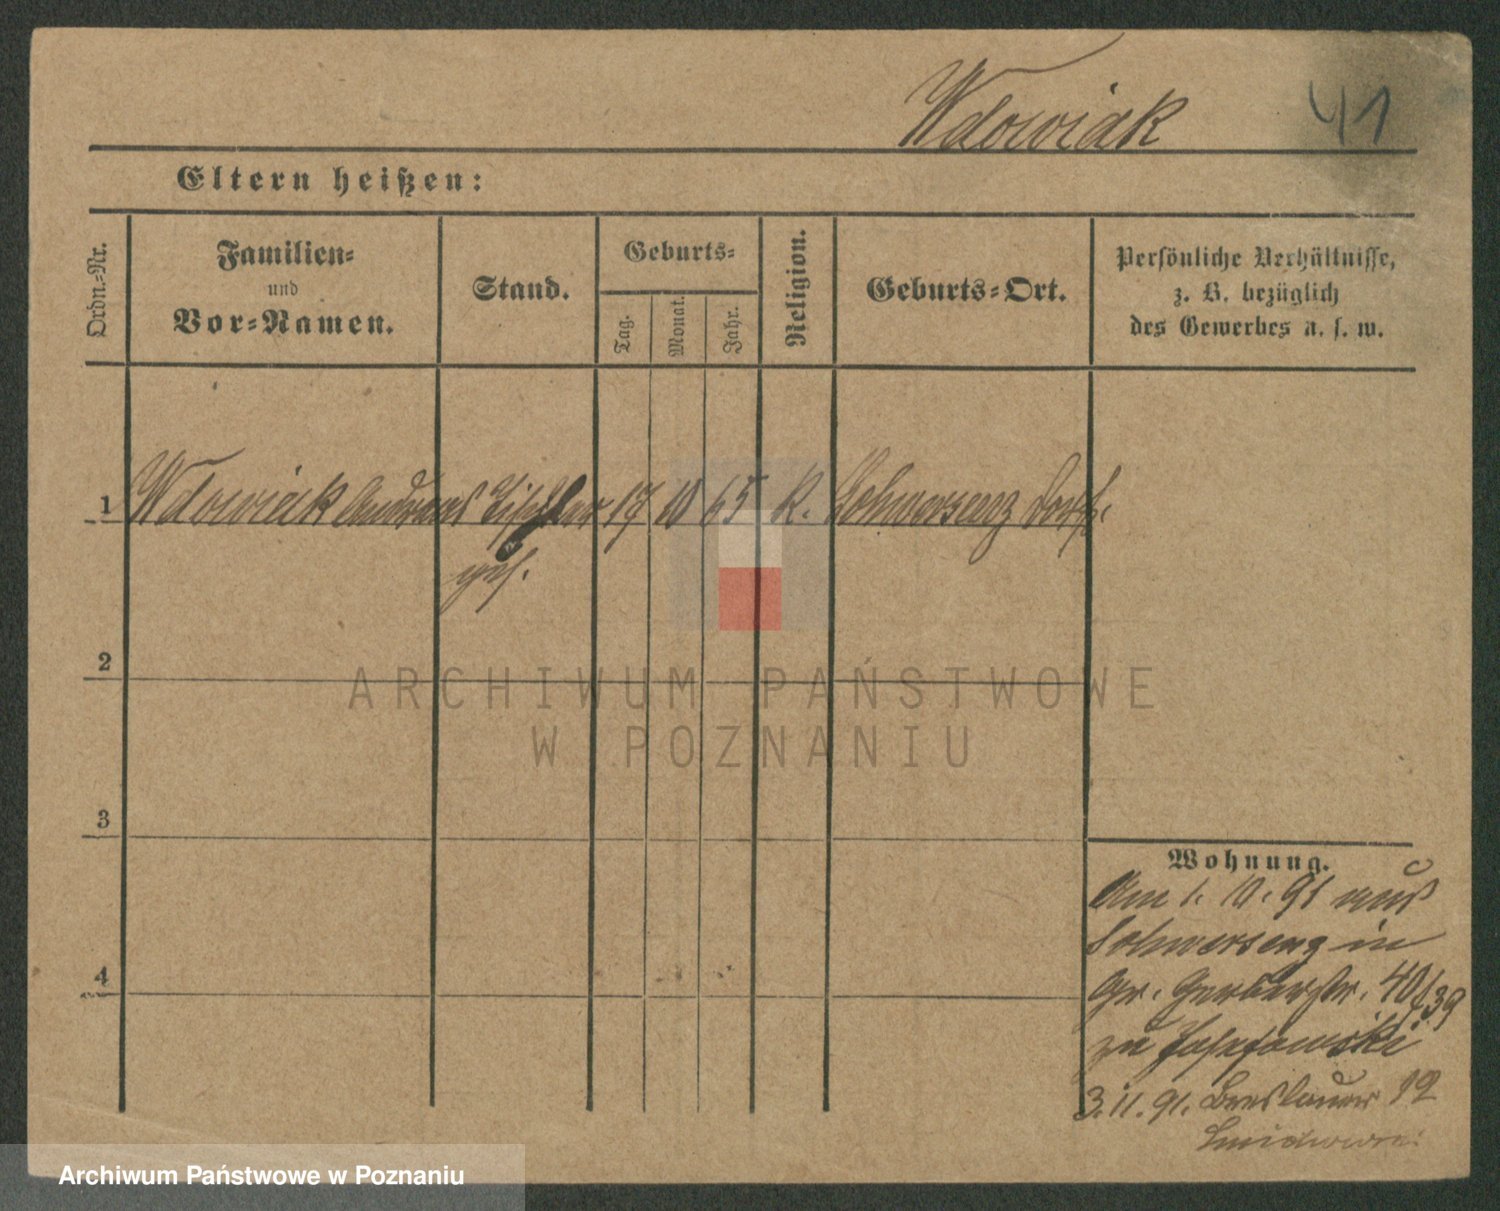 Wdowiak 41
Eltern heißen:
Ordn.-Nr.
Familien-
und
Vor-Namen.
Stand.
Geburts-
Tag.
Monat.
Jahr.
Religion.
Geburts-Ort.
Persönliche Verhältnisse,
z. B. bezüglich
des Gewerbes u. s. w.
1 Wdowiak Andreas Tischler 17 10 65 K. Schwersenz Dorf.
2
3
4
Wohnung.
Am 1. 10. 91 aus
Schwersenz in
Gr. Gerberstr. 40/39
zu Josefowski
3. 11. 91. Breslauer 19
ARCHIWUM PAŃSTWOWE
W POZNANIU
Archiwum Państwowe w Poznaniu